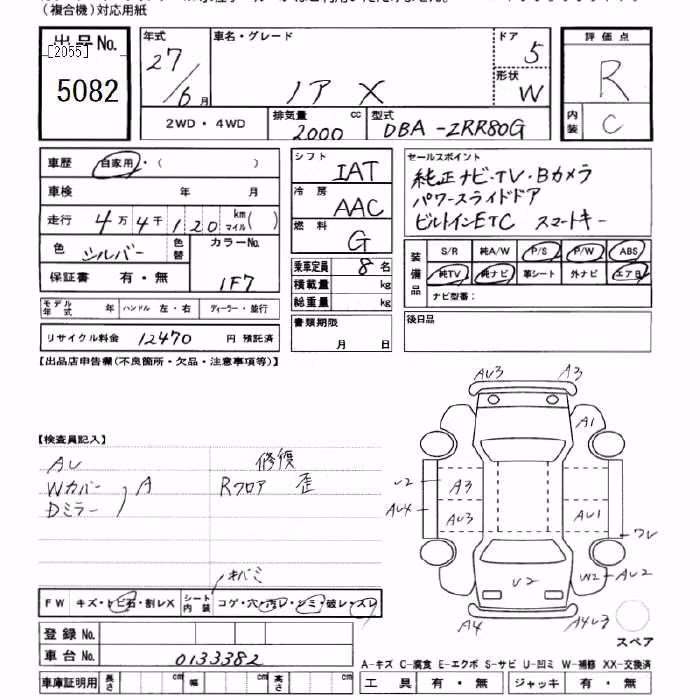 (複合機)対応用紙
出品No.
[2055]
5082
年式 27/6月
車名・グレード ノア X
ドア 5
形状 W
評価点 R
内装 C
2WD・4WD
排気量 2000 cc
型式 DBA-ZRR80G
車歴 自家用・( )
車検 年 月
走行 4万4千120 km マイル( )
色 シルバー 色替 カラーNo. 1F7
保証書 有・無
シフト IAT
冷房 AAC
燃料 G
乗車定員 8名
積載量 kg
総重量 kg
書類期限
月 日
セールスポイント
純正ナビ・TV・Bカメラ
パワースライドドア
ビルトインETC スマートキー
装備品
S/R 純A/W P/S P/W ABS
純TV 純ナビ 革シート 外ナビ エアB
ナビ型番:
後日品
モデル年式 年 ハンドル 左・右 ディーラー・並行
リサイクル料金 12470 円 預託済
【出品店申告欄(不良箇所・欠品・注意事項等)】
【検査員記入】
AU 修復
Wカバー Rフロア 歪
Dミラー
A
キバミ
FW キズ・トビ石・割レX シート内装 コゲ・穴・汚レ・シミ・破レ・スレ
登録No.
車台No. 0133382
車庫証明用 長さ cm 幅 cm 高さ cm
AU3 A3
A1
U2 A3
AU4 AU3 AU1
ワレ
U2 W2 AU2
A4 A4U3
スペア
A-キズ C-腐食 E-エクボ S-サビ U-凹ミ W-補修 XX-交換済
工具 有・無 ジャッキ 有・無